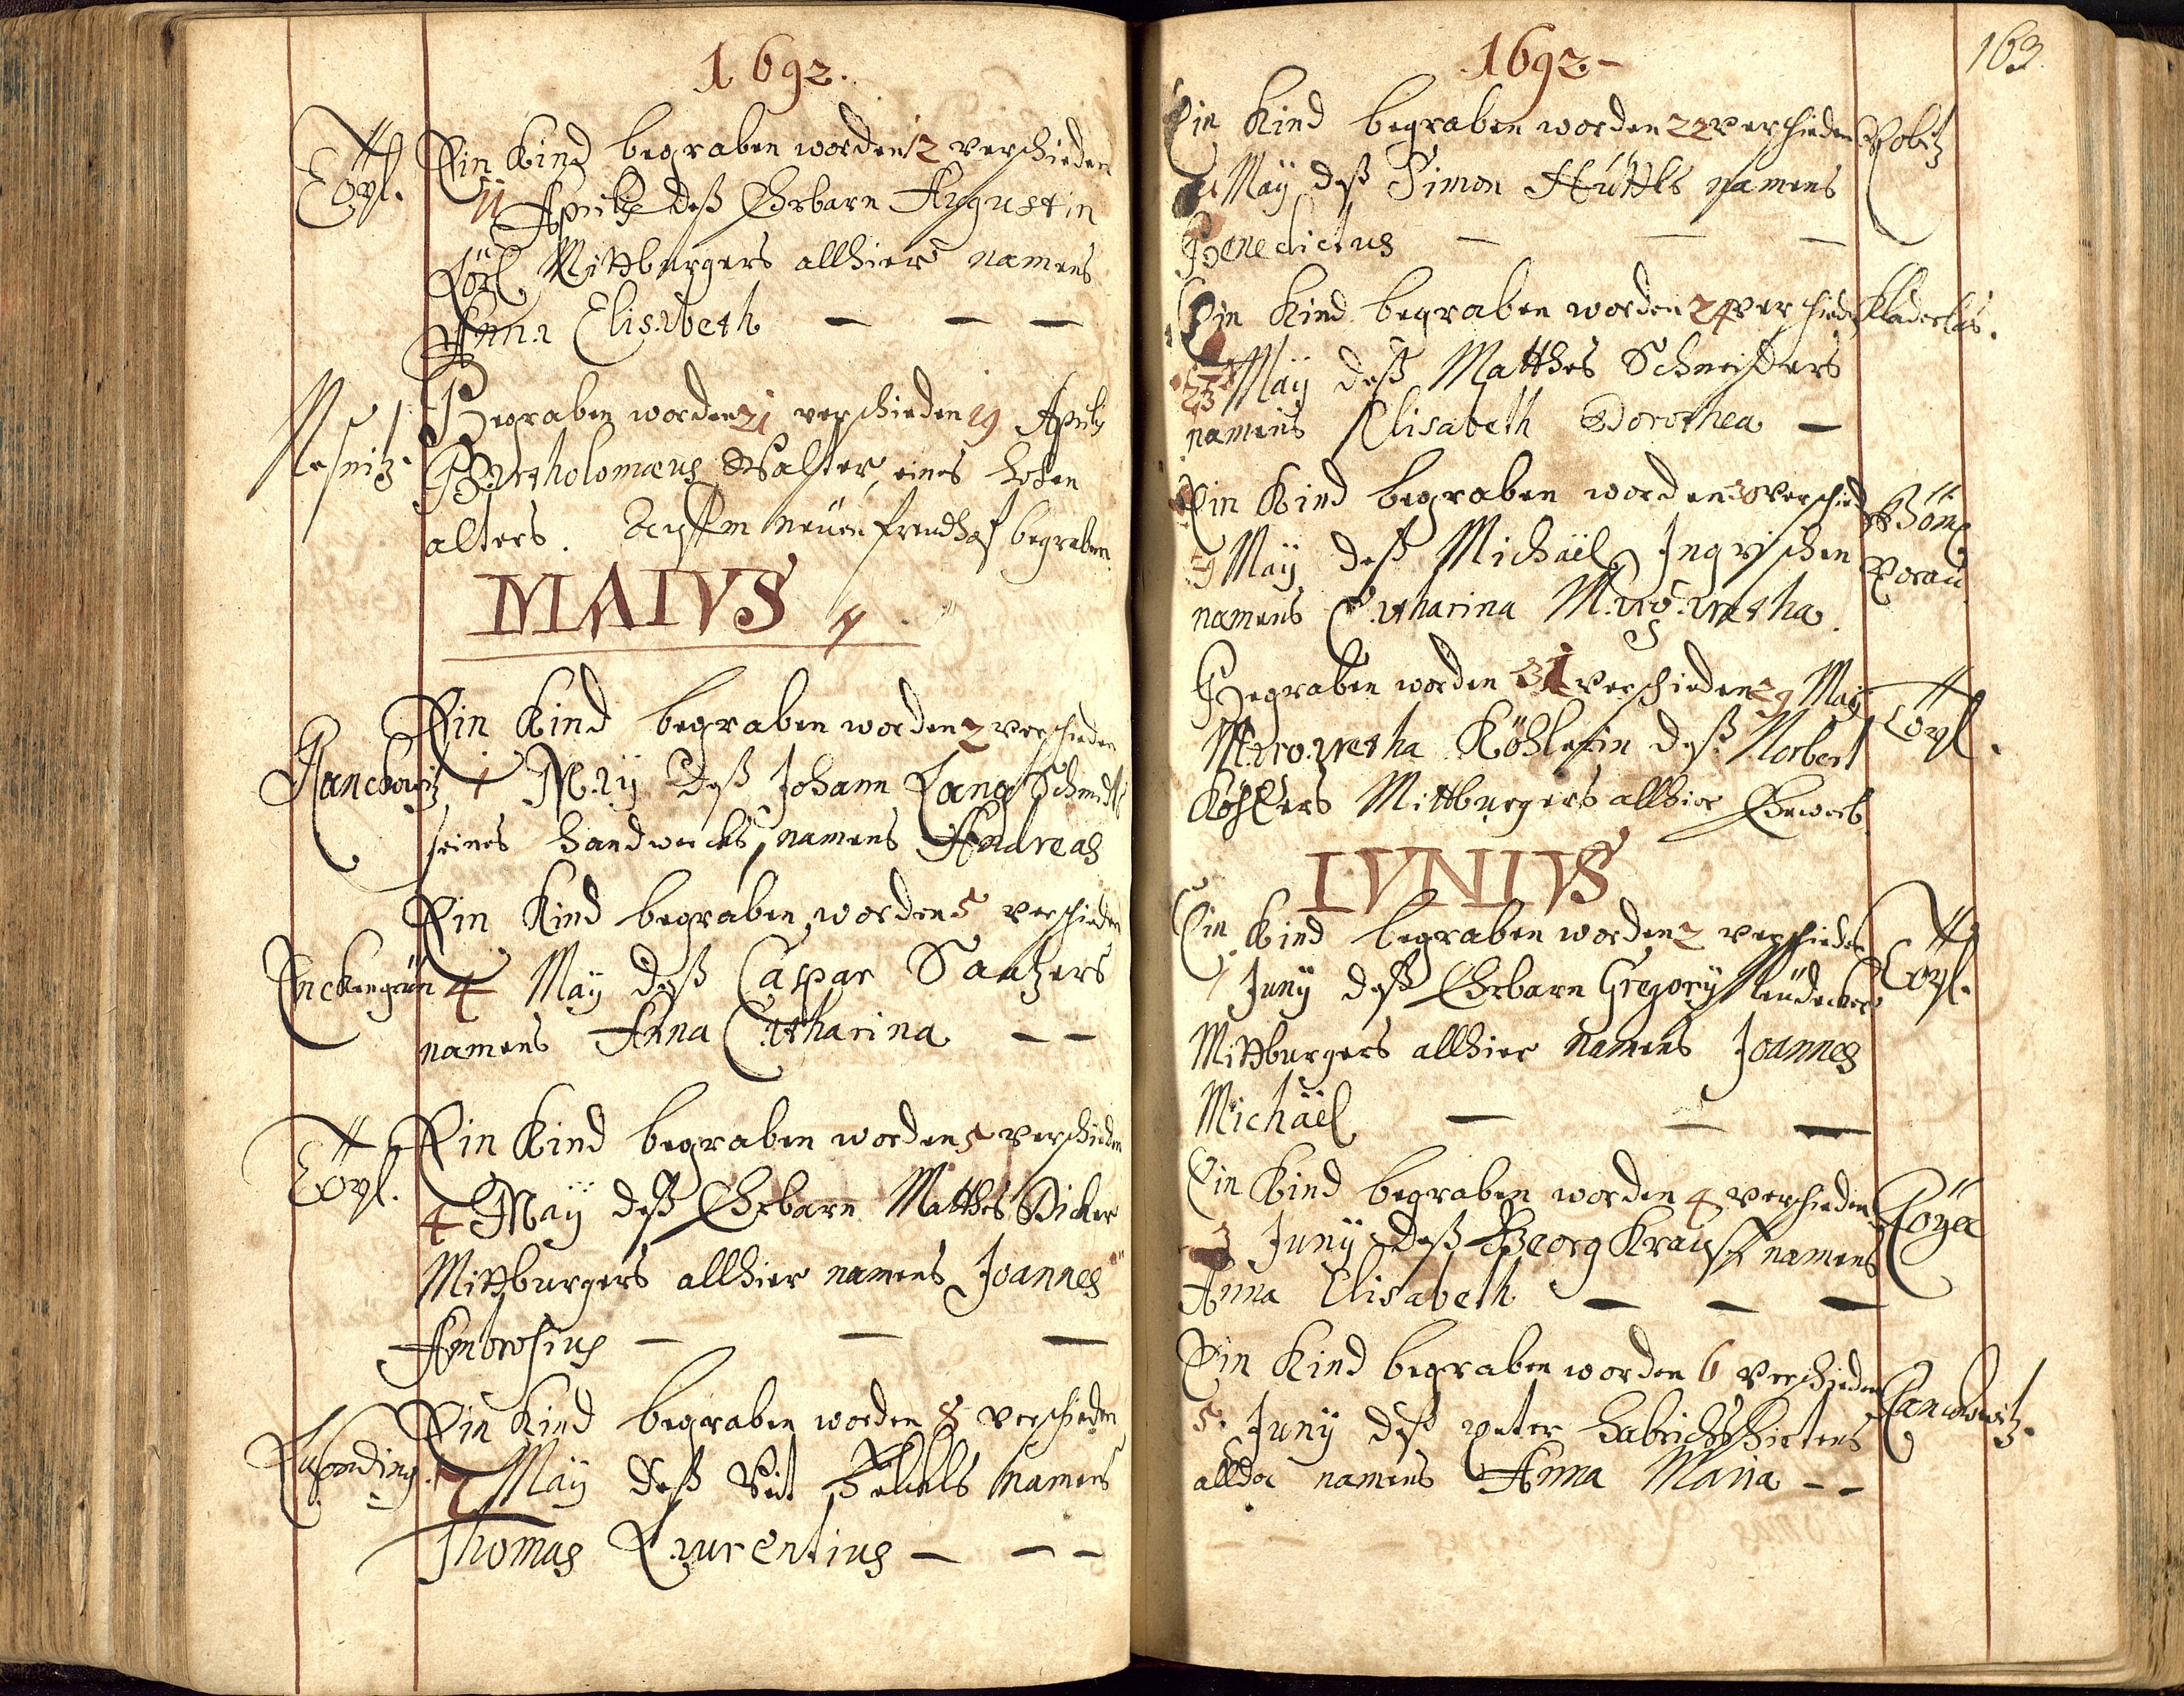 1692.
Töpl.
Ein Kind begraben worden 12 verschieden
11 Aprilis deß Ehrbarn Augustin
Mittburgers allhier namens
Anna Elisabeth — — —
Begraben worden 21 verschieden 19 Aprilis
Bartholomæus Walter, eines hohen
alters. Auffm neuen freudhof begraben.
MAIVS
Ein Kind begraben worden 2 verschieden
Hanckowitz
1 May deß Johann Lang Schmidts
seines handwercks, namens Andreas
Ein Kind begraben worden 5 verschieden
4 May deß Caspar Saatzers
namens Anna Catharina — —
Töpl.
Ein Kind begraben worden 5 verschieden
4 May deß Ehrbarn Matthes
Mittburgers allhier namens Joannes
Ambrosius — — —
Ein Kind begraben worden 8 verschieden
7 May deß Veit namens
Thomas Laurentius — — —
1692 -
163.
Ein Kind begraben worden 22 verschieden
21 May deß Simon Hüttls namens
Benedictus — — —
Ein Kind begraben worden 24 verschieden
23 May deß Matthes Schneiders
namens Elisabeth Dorothea —
Ein Kind begraben worden 30 verschied
Böm
Borau
May deß Michäel Ingrischen
namens Catharina Margaretha.
Begraben worden 31 verschieden 29 May
Töpl.
Margaretha Köhlerin deß Norbert
Köhlers Mittburgers allhier Eheweib.
IVNIVS
Ein Kind begraben worden 2 verschieden
Töpl.
1 Juny deß Ehrbarn Gregory
Mittburgers allhier namens Joannes
Michäel — — —
Ein Kind begraben worden 4 verschieden
3 Juny deß Georg Krauß namens
Anna Elisabeth — — —
Ein Kind begraben worden 6 verschieden
5. Juny deß peter Hirtens
allda namens Anna Maria — —